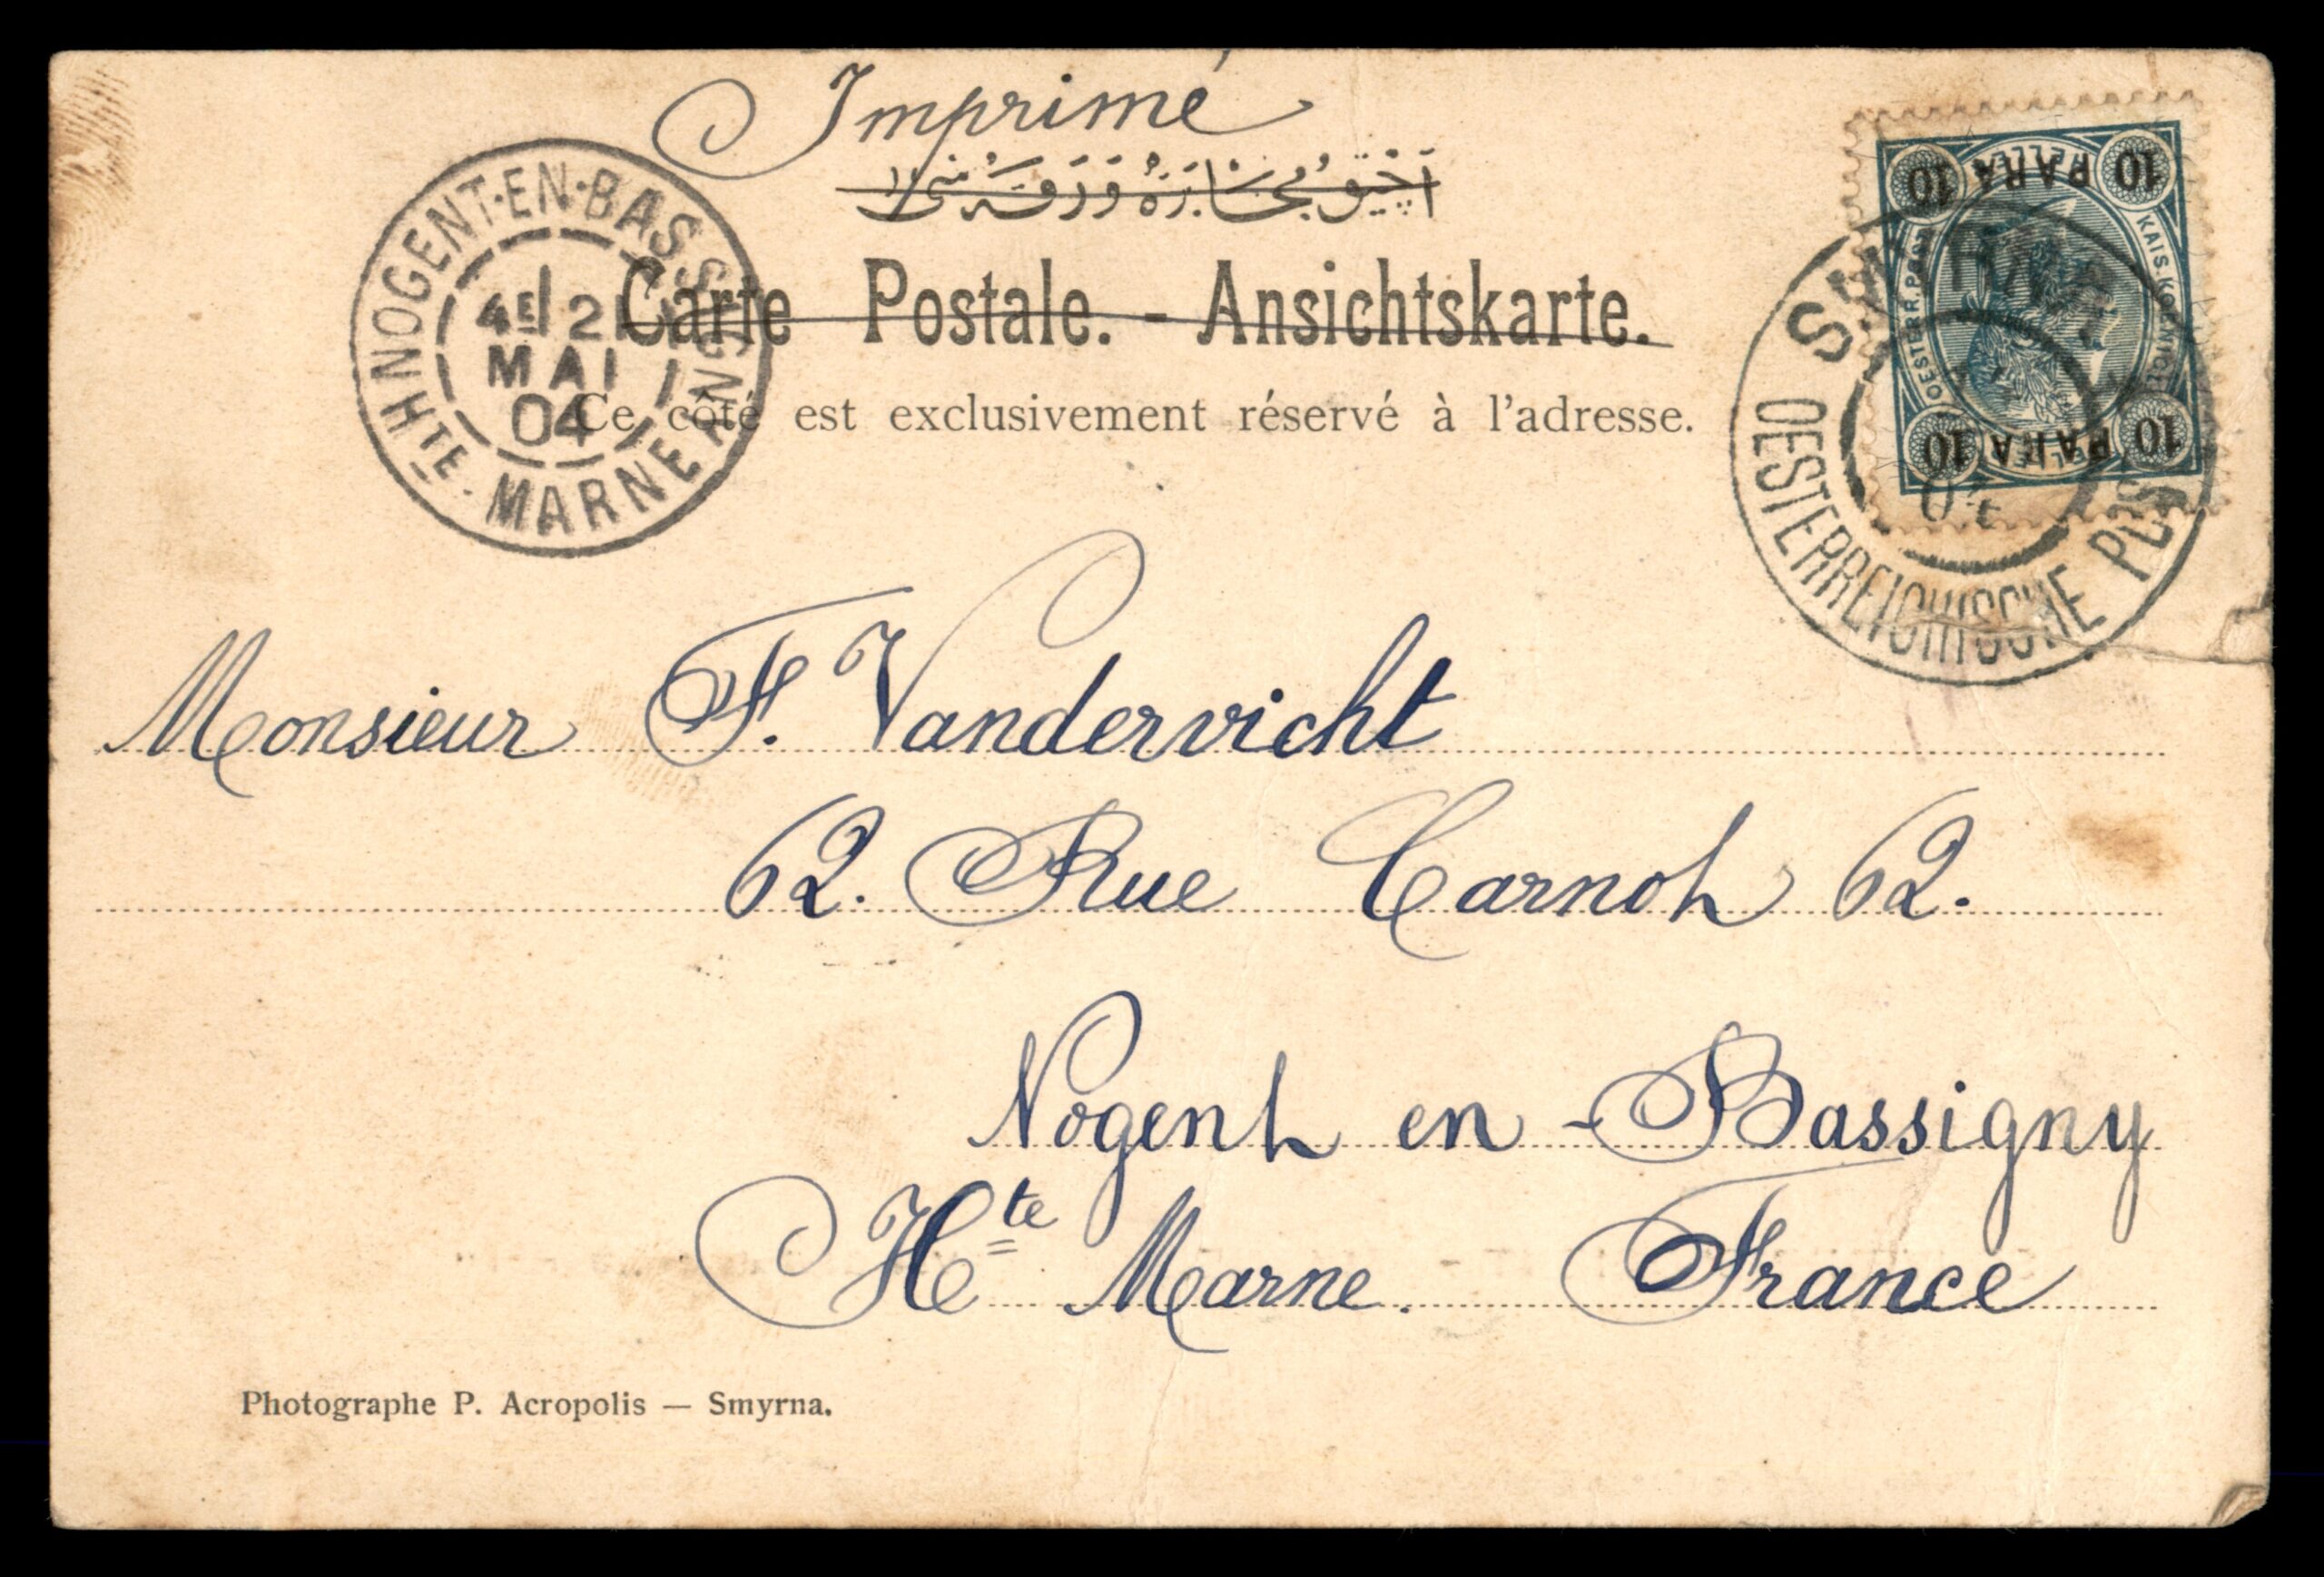 Imprimé
Carte Postale. - Ansichtskarte.
Ce côté est exclusivement réservé à l'adresse.
NOGENT-EN-BASSIGNY
4E 21
MAI
04
HTE. MARNE
10 PARA 10
HELLER
KAIS. KÖNIGL.
OESTERR. POST
10 PARA 10
SMYRNA
04
OESTERREICHISCHE POST
Monsieur F. Vandervicht
62. Rue Carnot 62.
Nogent en -Bassigny
Hte Marne. France
Photographe P. Acropolis — Smyrna.